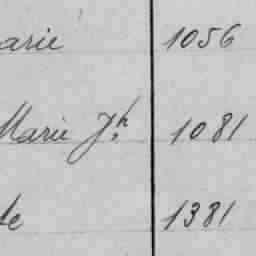 arie 1056
Marie Jh 1081
te 1381